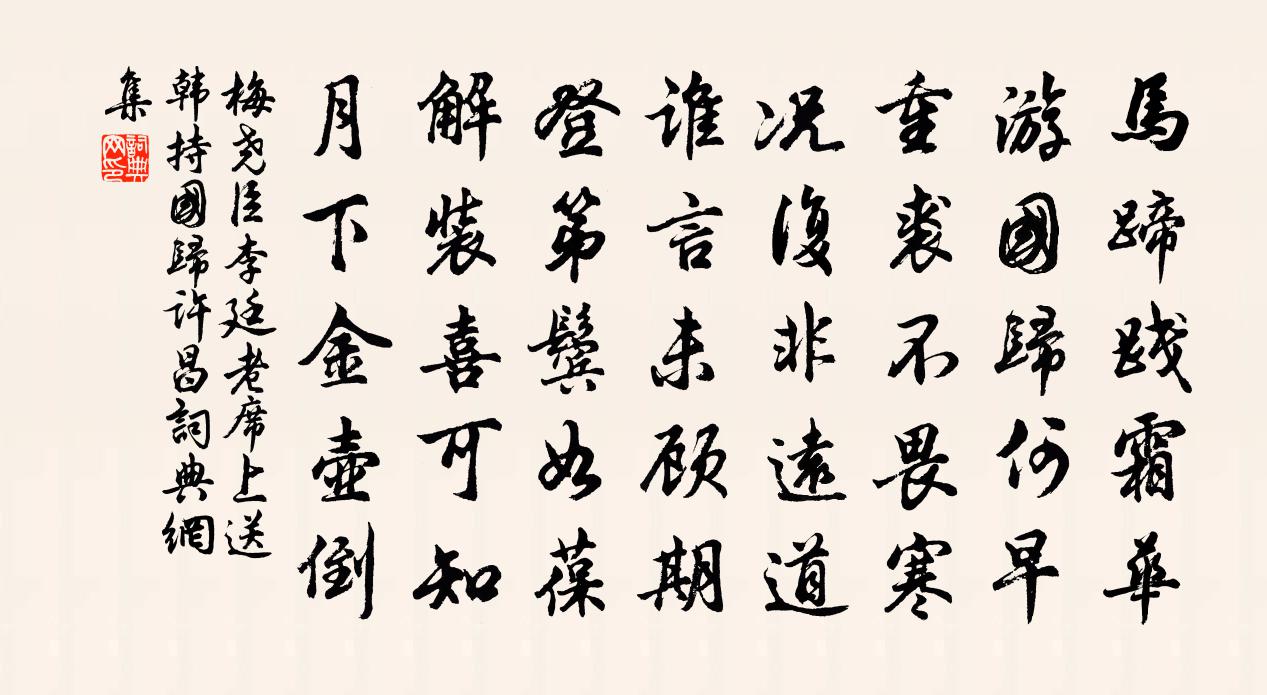 馬蹄踐霜華
游國歸何早
重裘不畏寒
况復非遠道
誰言未顧期
登第鬓如葆
解裝喜可知
月下金壺倒
梅尧臣李廷老席上送
韩持國歸许昌詞典網
集
詞典網印